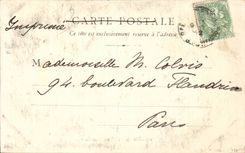 CARTE POSTALE
Imprimée
Ce côté est exclusivement réservé à l'adresse
Mademoiselle M. Colvis
94. boulevard Flandrin
Paris